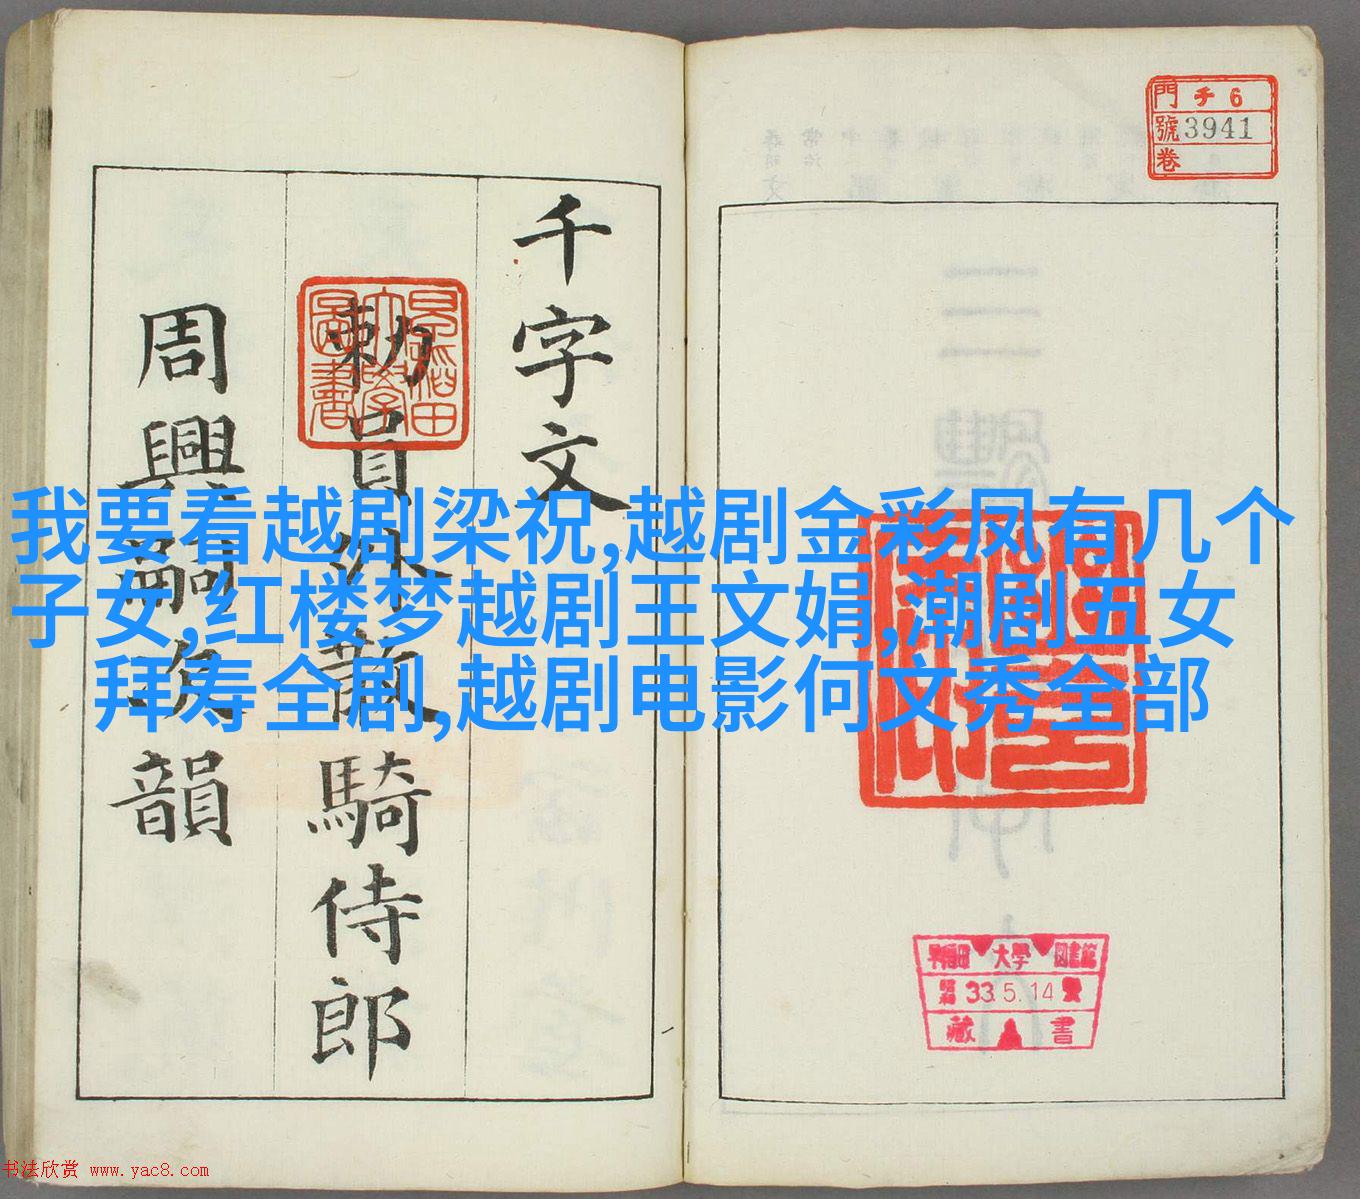 門 チ 6
號 3941
卷
千字文
勅員外散騎侍郎
周興嗣次韻
早稲田大學圖書
我要看越剧梁祝,越剧金彩凤有几个
子女,红楼梦越剧王文娟,潮剧五女
拜寿全剧,越剧电影何文秀全部
早稲田 大學 図書館
昭和 33.5.14
藏 書
书法欣赏 www.yac8.com